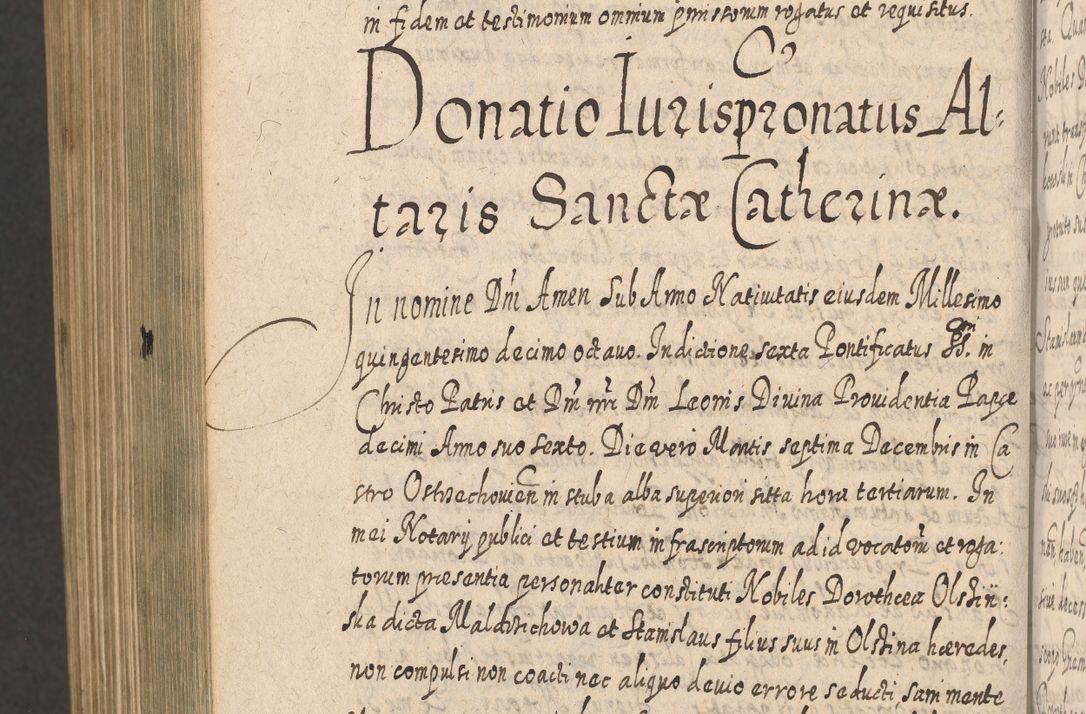 in fidem et testimonium omnium pmissorum rogatus et requisitus.
Donatio Iurispronatus Al-
taris Sanctæ Catherinæ.
In nomine Dni Amen Sub Anno Nativitatis eiusdem Millesimo
quingentesimo decimo octavo. Indictione sexta Pontificatus SS. in
Christo Patris et Dni nri Dni Leonis Divina Providentia Papæ
decimi Anno suo sexto. Die vero Martis septima Decembris in Ca
stro Ostrzechovien in stuba alba superiori sitta hora tertiarum. In
mei Notarij publici et testium infrascriptorum ad id vocatorum et roga:
torum præsentia personaliter constituti Nobiles Dorothea Olstin:
ska dicta Maldrzichowa et Stanislaus filius suus in Olstina hæredes,
non compulsi non coacti nec aliquo devio errore seducti, sani mente